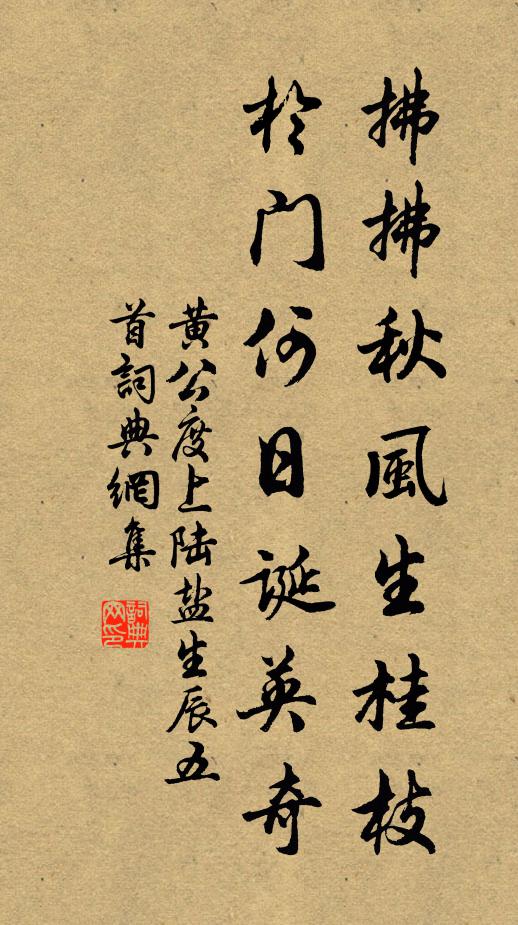 拂拂秋風生桂枝
於门何日誕英奇
黄公度上陆盐生辰五
首詞典網集
詞典网印